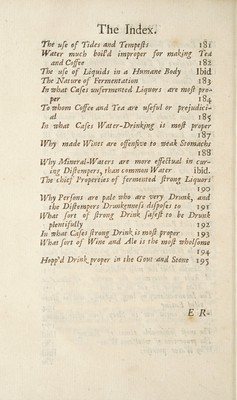 The Index.
The use of Tides and Tempests 181
Water much boil'd improper for making Tea
and Coffee 182
The use of Liquids in a Humane Body Ibid
The Nature of Fermentation 183
In what Cases unfermented Liquors are most pro-
per 184
To whom Coffee and Tea are useful or prejudici-
al 185
In what Cases Water-Drinking is most proper
187
Why made Wines are offensive to weak Stomachs
188
Why Mineral-Waters are more effectual in cur-
ing Distempers, than common Water ibid.
The chief Properties of fermented strong Liquors
190
Why Persons are pale who are very Drunk, and
the Distempers Drunkenness disposes to 191
What sort of strong Drink safest to be Drunk
plentifully 192
In what Cases strong Drink is most proper 193
What sort of Wine and Ale is the most wholsome
194
Hopp'd Drink, proper in the Gout and Stone 195
E R-